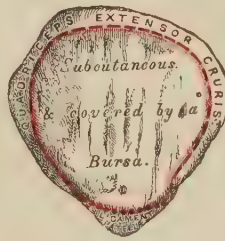 QUADRICEPS EXTENSOR CRURIS.
Subcutaneous.
& covered by a
Bursa.